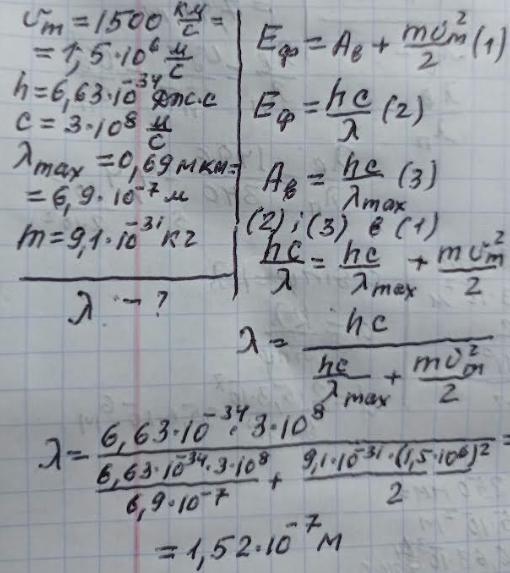 υm = 1500 км/с =
= 1,5·10⁶ м/с
h = 6,63·10⁻³⁴ Дж·с
c = 3·10⁸ м/с
λmax = 0,69 мкм =
= 6,9·10⁻⁷ м
m = 9,1·10⁻³¹ кг
λ - ?
Eф = Aв + mυm²/2 (1)
Eф = hc/λ (2)
Aв = hc/λmax (3)
(2) ; (3) в (1)
hc/λ = hc/λmax + mυm²/2
λ = hc/(hc/λmax + mυm²/2)
λ = (6,63·10⁻³⁴·3·10⁸)/((6,63·10⁻³⁴·3·10⁸)/(6,9·10⁻⁷) + (9,1·10⁻³¹·(1,5·10⁶)²)/2) =
= 1,52·10⁻⁷ м